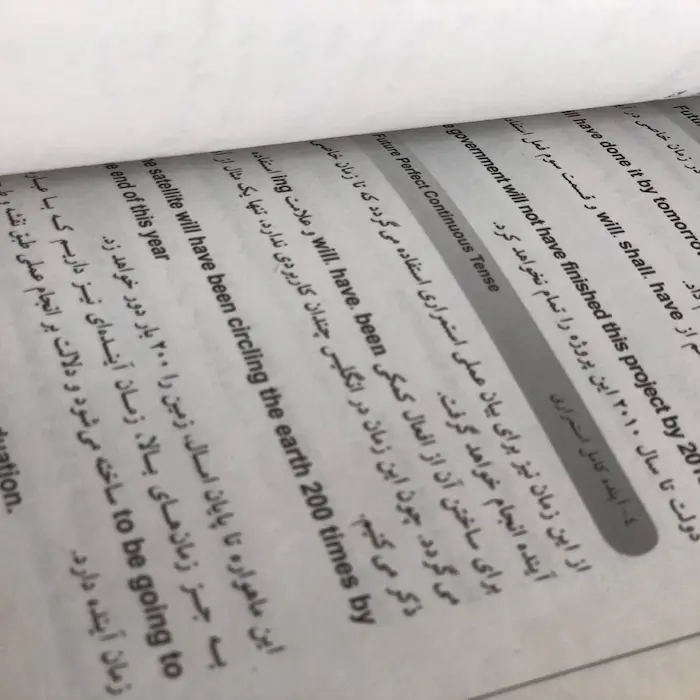 در زمان خاصی در
ll have done it by tomorro
از will, shall, have و قسمت سوم فعل استفاده
government will not have finished this project by 201
دولت تا سال ۲۰۱۰ این پروژه را تمام نخواهد کرد.
Future Perfect Continuous Tense ۴- آینده کامل استمراری
از این زمان نیز برای بیان عملی استمراری استفاده می گردد که تا زمان خاصی
آینده انجام خواهد گرفت.
برای ساختن آن از افعال کمکی will, have, been و علامت ing استفاده
می گردد. چون این زمان در انگلیسی چندان کاربردی ندارد، تنها یک مثال از
ذکر می کنیم.
he satellite will have been circling the earth 200 times by
e end of this year
این ماهواره تا پایان امسال، زمین را ۲۰۰ بار دور خواهد زد.
به جز زمان‌های بالا، زمان آینده‌ای نیز داریم که با
to be going to ساخته می شود و دلالت بر انجام عملی طبق نقشه و
زمان آینده دارد.
uation.